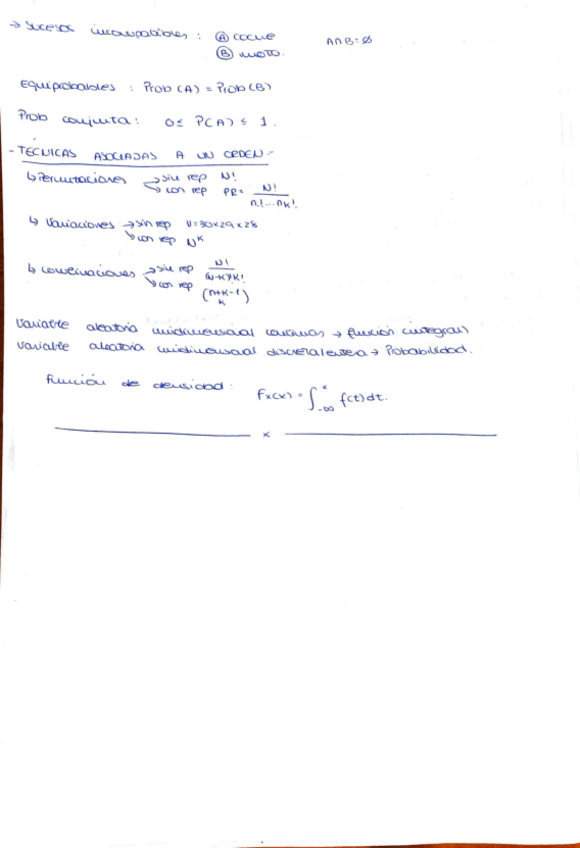 → Sucesos incompatibles : Ⓐ coche A∩B=∅
Ⓑ moto.
Equiprobables : Prob (A) = Prob (B)
Prob conjunta : 0 ≤ P(A) ≤ 1.
- TÉCNICAS ASOCIADAS A UN ORDEN:-
↳ Permutaciones → sin rep N!
→ con rep PR = N! / n1!...nk!
↳ Variaciones → sin rep V=30x29x28
↳ con rep N^K
↳ combinaciones → sin rep N! / (N-K)!K!
→ con rep (n+k-1 / k)
Variable aleatoria unidimensional continuas → función (integral)
Variable aleatoria unidimensional discreta/entera → Probabilidad.
Función de densidad : Fx(x) = ∫_{-∞}^{x} f(t)dt.
x